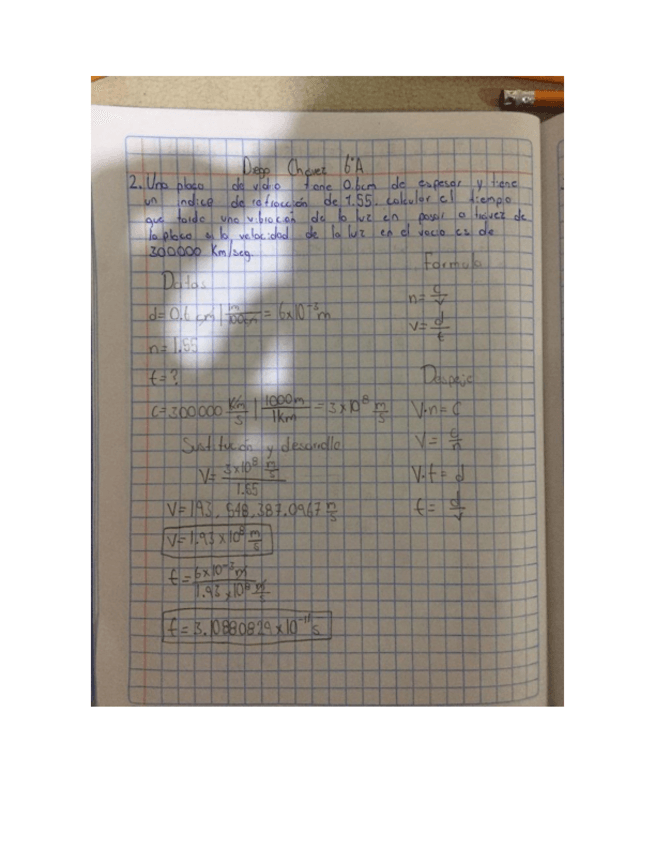 Diego Chávez 6°A
2. Una placa de vidrio tiene 0.6cm de espesor y tiene
un índice de refracción de 1.55. calcular el tiempo
que tarda una vibración de la luz en pasar a travez de
la placa si la velocidad de la luz en el vacio es de
300000 Km/seg.
Datos
d= 0.6 cm | 1m/100cm = 6x10⁻³m
n= 1.55
t= ?
C= 300000 Km/s | 1000m/1km = 3x10⁸ m/s
Formula
n= c/v
v= d/t
Despeje
V·n= C
V= c/n
V·t= d
t= d/v
Sustitución y desarrollo
V= 3x10⁸ m/s / 1.55
V= 193, 548, 387.0967 m/s
V= 1.93 x 10⁸ m/s
t= 6x10⁻³m / 1.93 x10⁸ m/s
t= 3.10880829x10⁻¹¹s